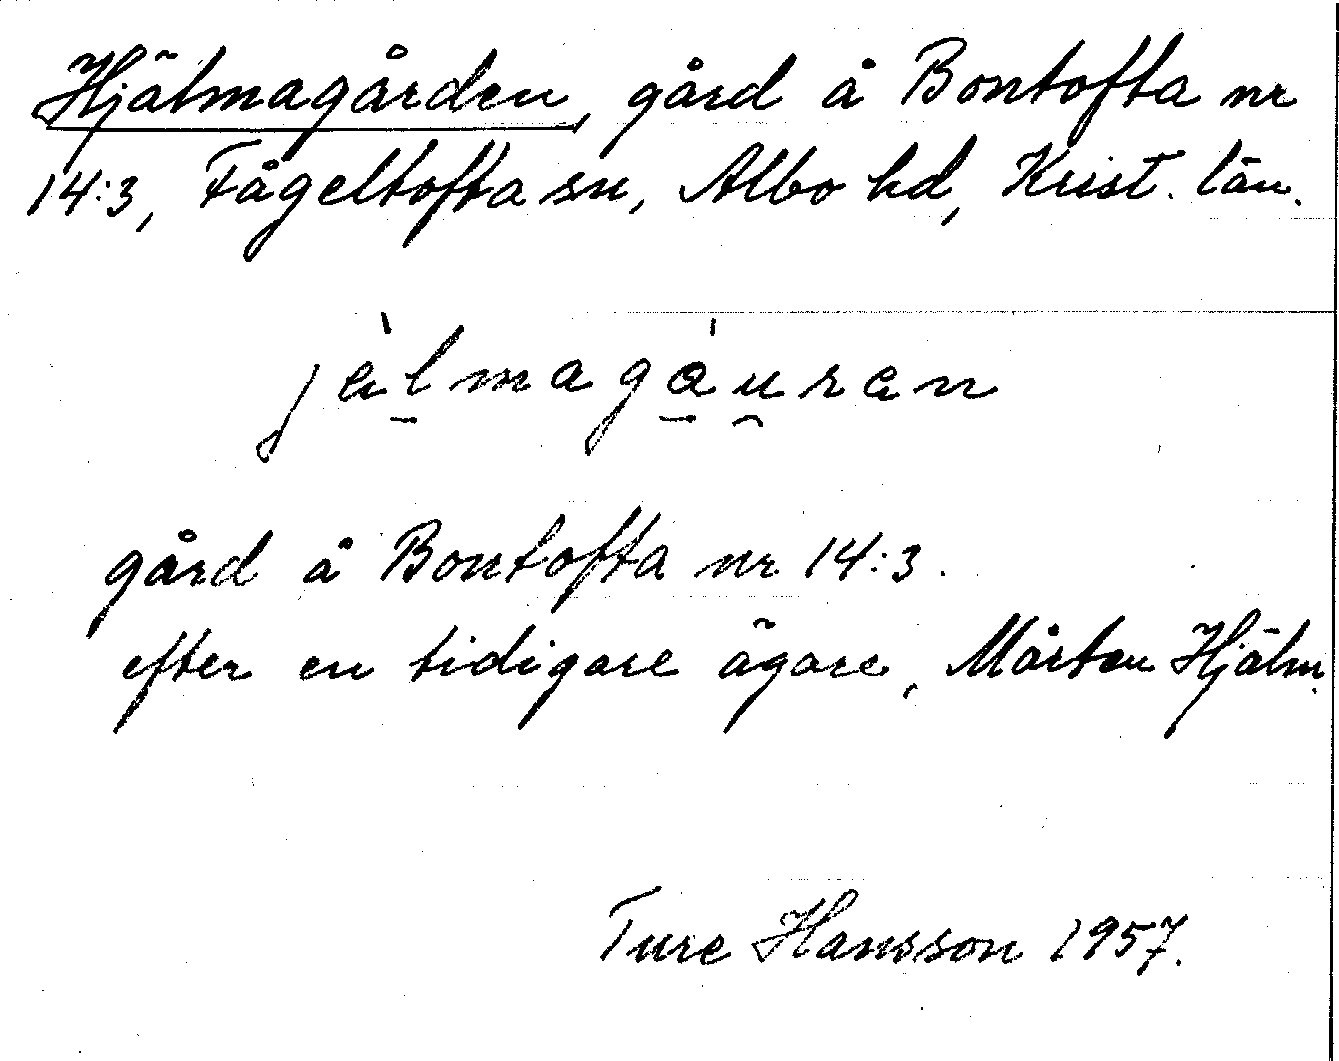 Hjälmagården, gård å Bontofta nr
14:3, Fågeltofta sn, Albo hd, Krist. län.
jä̀lmagáu̯ran
gård å Bontofta nr 14:3.
efter en tidigare ägare, Mårten Hjälm.
Ture Hansson 1957.